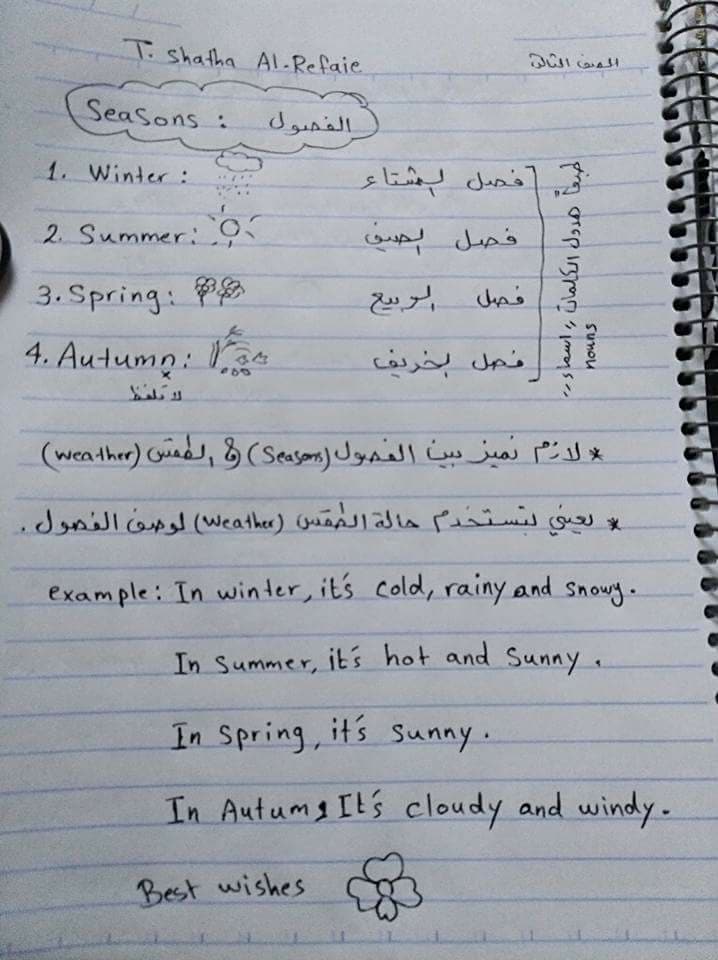 T. Shatha Al-Refaie
الصف الثالث
Seasons : الفصول
1. Winter : فصل الشتاء
2. Summer : فصل الصيف
3. Spring : فصل الربيع
4. Autumn : فصل الخريف
x
لا تلفظ
هدول الكلمات "اسماء"
nouns
* لازم نميز بين الفصول (Seasons) و الطقس (weather)
* يعني بتستخدم حالة الطقس (weather) لوصف الفصول .
example : In winter, it's cold, rainy and snowy.
In summer, it's hot and sunny .
In spring, it's sunny .
In Autum, It's cloudy and windy.
Best wishes